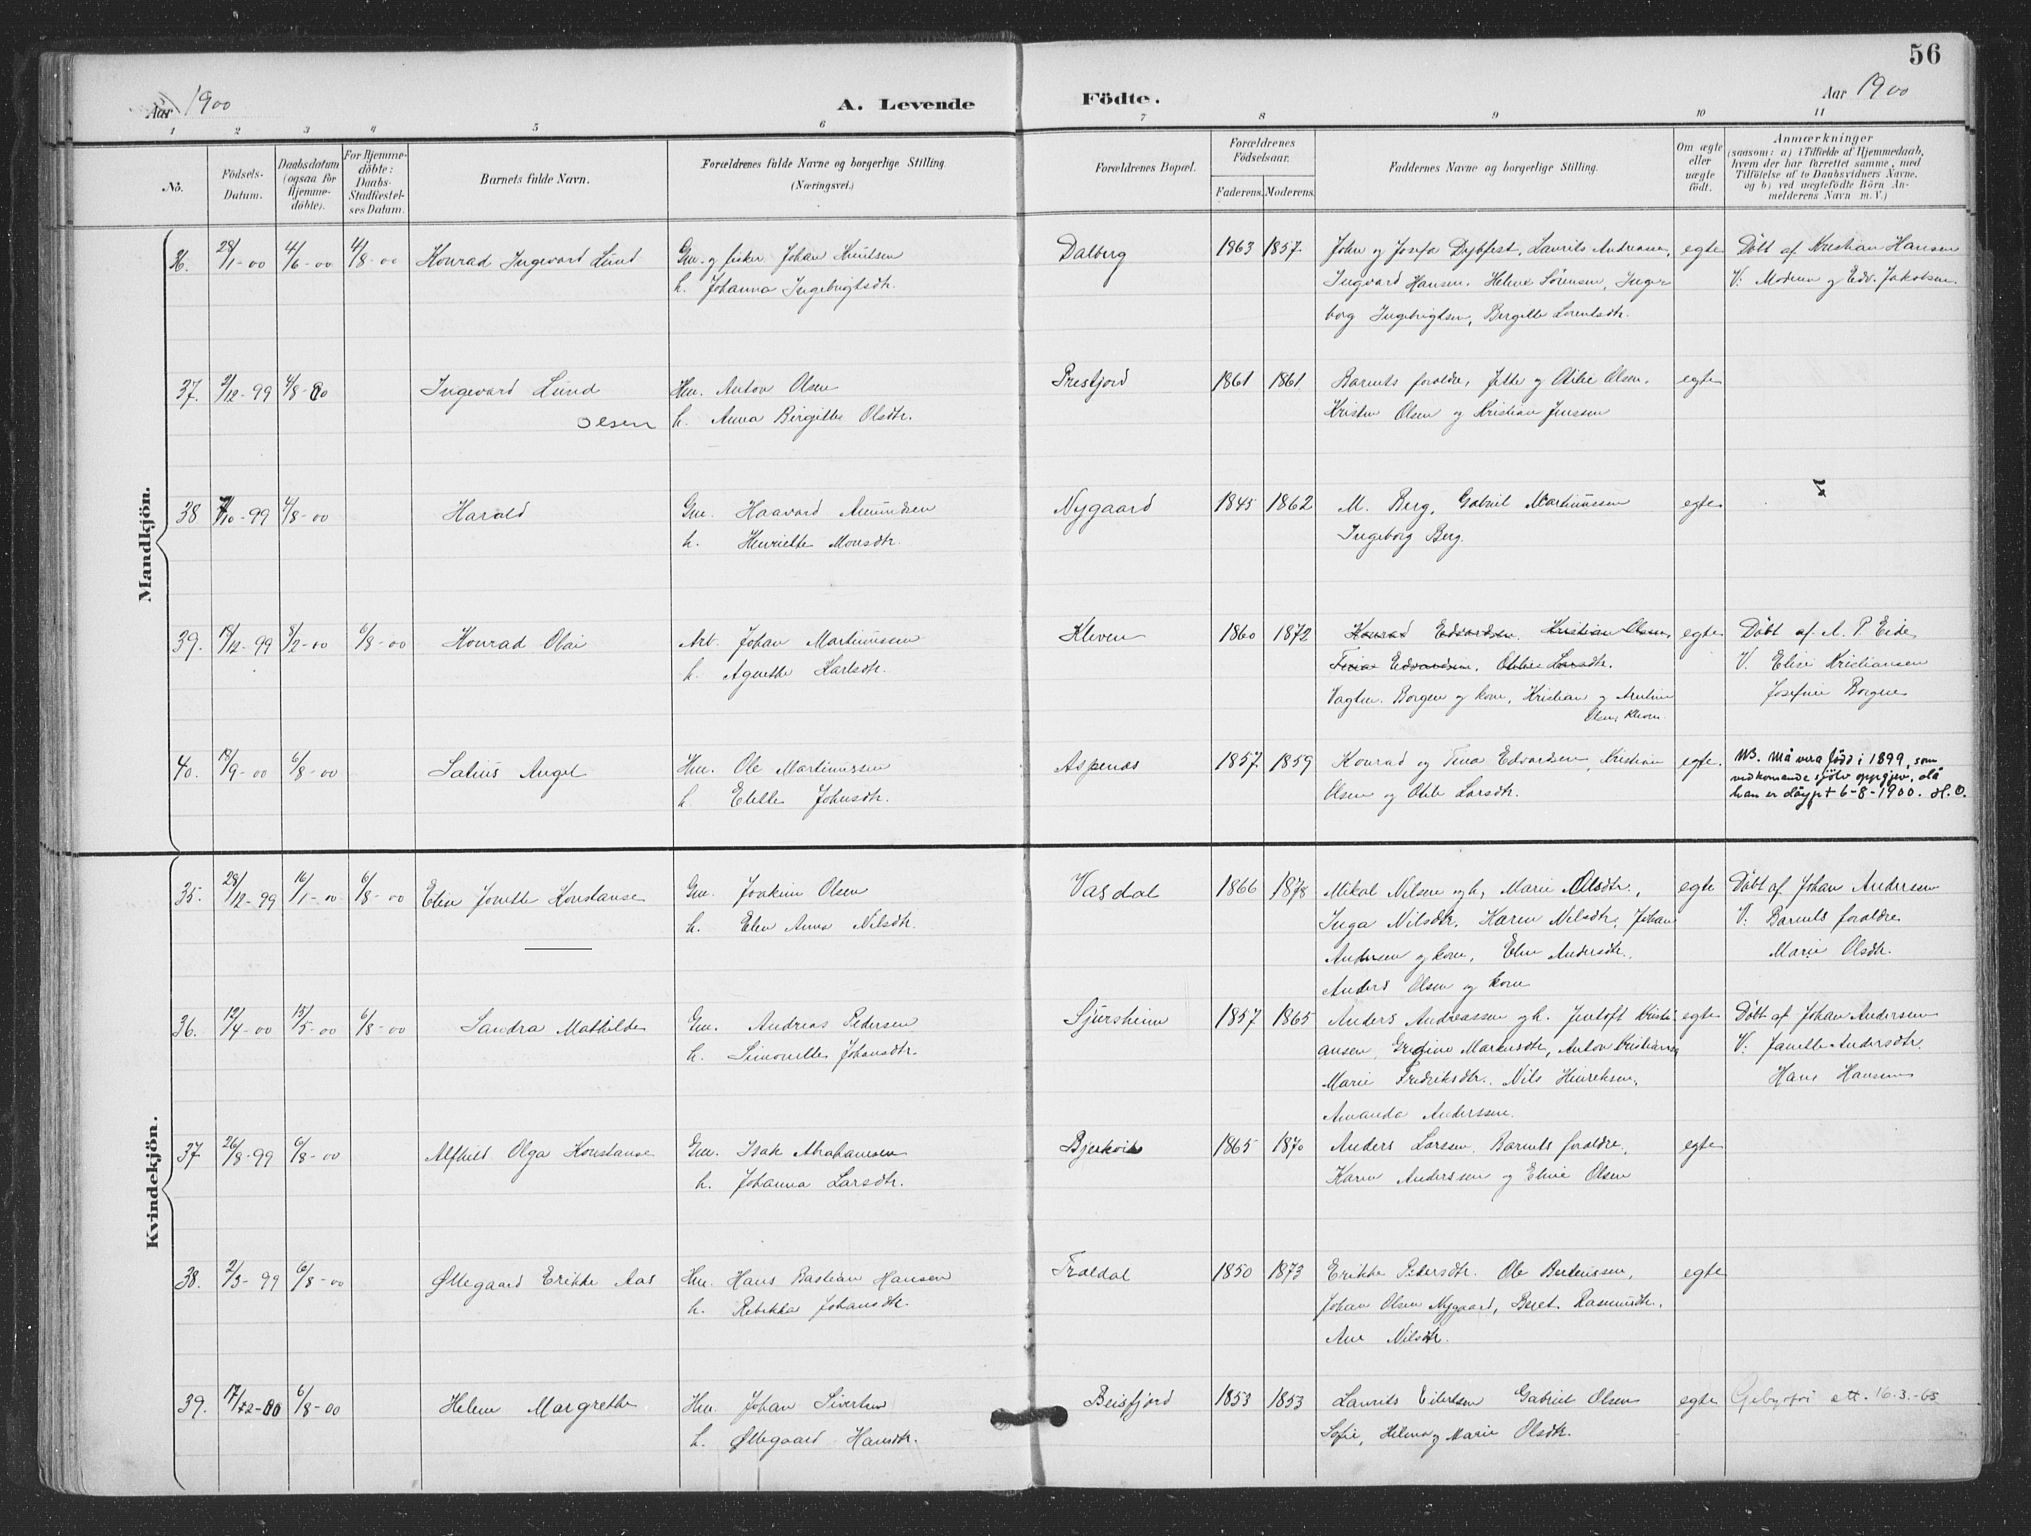 56
Aar 1900
A. Levende
Födte.
Aar 1900
1 2 3 4 5 6 7 8 9 10 11
No.
Födsels-
Datum.
Daabsdatum
(ogsaa for
Hjemme-
döbte).
For Hjemme-
döbte:
Daabs-
Stadfæstel-
ses Datum.
Barnets fulde Navn.
Forældrenes fulde Navne og borgerlige Stilling.
(Næringsvei.)
Forældrenes Bopæl.
Forældrenes
Födselsaar.
Faderens. Moderens.
Faddernes Navne og borgerlige Stilling.
Om ægte
eller
uægte
født.
Anmærkninger
(saasom: a) i Tilfælde af Hjemmedaab,
hvem der har forrettet samme, med
Tilföielse af to Daabsvidners Navne,
og b) ved uægtefödte Börn An-
melderens Navn m. V.)
Mandkjön.
36. 28/1-00 4/6-00 4/8-00 Konrad Ingevard Lund Gm. og fisker Johan Knutsen Dalberg 1863 1857 John og Josefa Dybfest, Laurits Andreasen, egte Döbt af Kristian Hansen
h. Johanna Ingebrigtsdtr. Ingvard Hansen, Helene Sörensen, Inge- V: Moderen og Edv. Jakobsen.
borg Ingebrigtsen, Bergitte Lorentsdtr.
37. 9/12-99 4/8-00 Ingevard Lund Hm. Anton Olsen Prestjord 1861 1861 Barnets foraldre, Jette og Otilie Olsen, egte
Olsen h. Anna Birgitte Olsdtr. Kristen Olsen og Kristian Jenssen
38 /10-99 4/8-00 Harald Gm. Haavard Amundsen Nygaard 1845 1862 M. Berg, Gabriel Martinussen egte
h. Henriette Monsdtr. Ingeborg Berg.
39. 19/12-99 8/2-00 6/8-00 Konrad Olai Arb. Johan Martinussen Kleven 1860 1872 Konrad Edvardsen, Kristian Olsen, egte Döbt af A. P. Eide
h. Agnethe Karlsdtr. Trina Edvardsen, Otilie Larsdtr. V. Elise Kristiansen
Vagtm. Borgen og kone, Kristian og Josefine Borgen
Olsen, Kleven.
40. 19/9-00 6/8-00 Salius Angel Hm. Ole Martinussen Aspenes 1857 1859 Konrad og Trina Edvardsen, Kristian egte. NB. Må vera född i 1899, som
h. Johnsdtr. Olsen og Otilie Larsdtr. vedkomande sjölv oppgjev, då
han er döypt 6-8-1900. H. O.
Kvindekjön.
35. 28/12-99 16/1-00 6/8-00 Elen Jonette Konstanse Gm. Joakim Olsen Vasdal 1866 1878 Mikal Nilsen og h. Marie Olsdtr., egte Döbt af Johan Andersen
h. Elen Anna Nilsdtr. Inga Nilsdtr, Karen Nilsdtr, Johan V: Barnets foraldre
Andersen og kone, Elen Andersdtr., Marie Olsdtr.
Anders Olsen og kone
36. 12/4-00 15/5-00 6/8-00 Sandra Mathilde Gm. Andreas Pedersen Sjursheim 1857 1865 Anders Andreassen og h. Jentoft Kristi- egte Döbt af Johan Andersen
h. Simonette Johansdtr. ansen, Gregine Markusdtr, Anton Kristiansen V: Janette Andersdtr.
Marie Fredriksdtr. Nils Henriksen, Hans Hansen
Amanda Anderssen.
37 26/8-99 6/8-00 Alfhild Olga Konstanse Gm. Isak Abrahamsen Bjerkvik 1865 1870 Anders Larsen, Barnets foraldre, egte
h. Johanna Larsdtr. Karen Anderssen og Eline Olsen
38. 2/3-99 6/8-00 Øllegaard Erikke Aas Hm. Hans Bastian Hansen Traldal 1850 1873 Erikke Pedersdtr. Ole Berteussen, egte
h. Rebikka Johansdtr. Johan Olsen Nygaard, Beret Rasmusdtr.
Ane Nilsdtr.
39. 17/12-00 6/8-00 Helene Margrethe Hm. Johan Sivertsen Beisfjord 1853 1853 Laurits Eilertsen Gabriel Olsen egte Gebyrfri att. 16.3.-65
h. Øllegaard Hansdtr. Sofie, Helena og Marie Olsdtr.